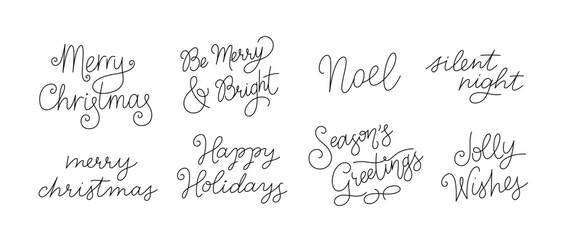 Merry
Christmas
Be Merry
& Bright
Noel
silent
night
merry
christmas
Happy
Holidays
Season's
Greetings
Jolly
Wishes